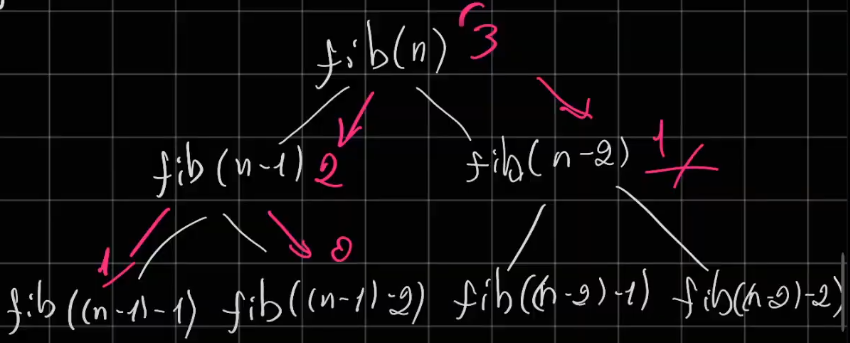 fib(n) 3
fib(n-1) 2 fib(n-2) 1
1 0
fib((n-1)-1) fib((n-1)-2) fib((n-2)-1) fib((n-2)-2)